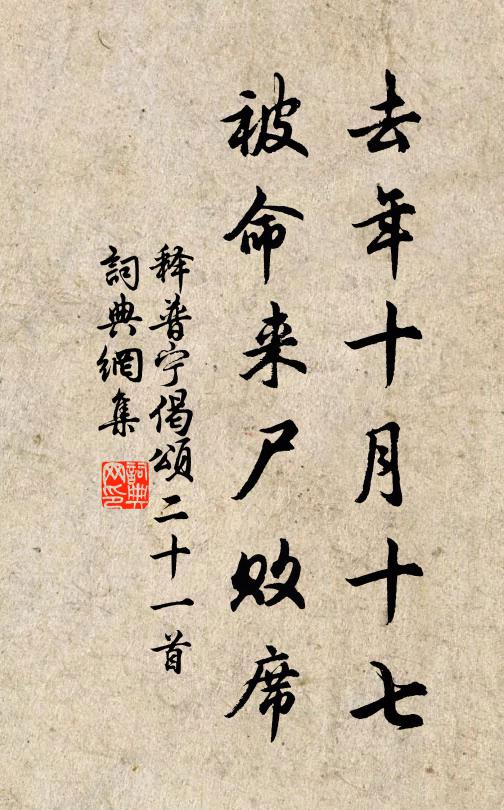 去年十月十七
被命来尸败席
释普宁偈颂二十一首
詞典網集
詞典网印